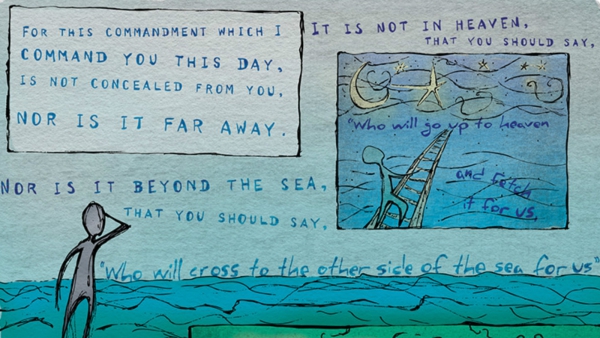 FOR THIS COMMANDMENT WHICH I
COMMAND YOU THIS DAY,
IS NOT CONCEALED FROM YOU,
NOR IS IT FAR AWAY.
IT IS NOT IN HEAVEN,
THAT YOU SHOULD SAY,
"Who will go up to heaven
and fetch
it for us,
NOR IS IT BEYOND THE SEA,
THAT YOU SHOULD SAY,
"Who will cross to the other side of the sea for us"